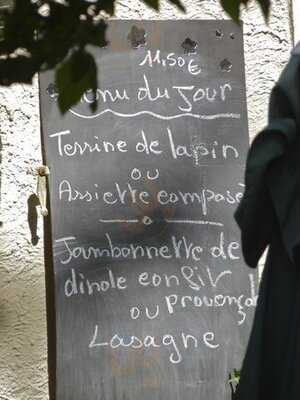 11,50€
Menu du Jour
Terrine de lapin
ou
Assiette composé
Jambonnette de
dinde confit
provençal
ou
Lasagne